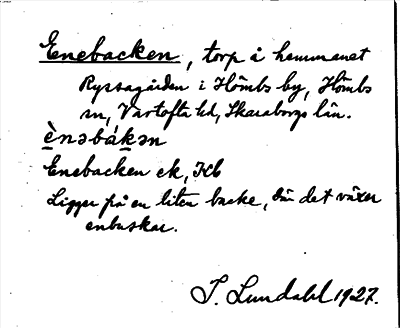 Enebacken, torp å hemmanet
Ryssagården i Hömbs by, Hömbs
sn, Vartofta hd, Skaraborgs län.
ènəbákən
Enebacken ek, Kb
Ligger på en liten backe, där det växer
enbuskar.
I. Lundahl 1927.